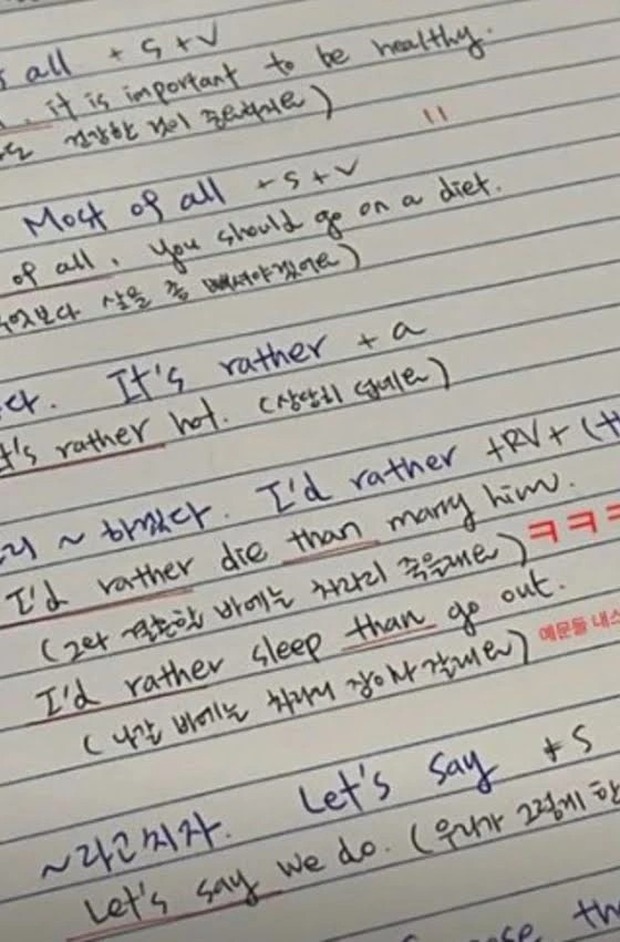 all + S + V
it is important to be healthy.
건강한 것이 중요하지요)
"
Most of all + S + V
of all, You should go on a diet.
살을 좀 빼셔야겠어요)
It's rather + a
It's rather hot. (상당히 덥네요)
~ 하겠다. I'd rather +RV+ (
I'd rather die than marry him.
(그와 결혼할 바에는 차라리 죽을래요) ㅋㅋㅋ
I'd rather sleep than go out.
(나갈 바에는 차라리 잠이나 잘래요) 예문들 내스
~라고치자. Let's say + S
Let's say we do. (우리가 그렇게 한